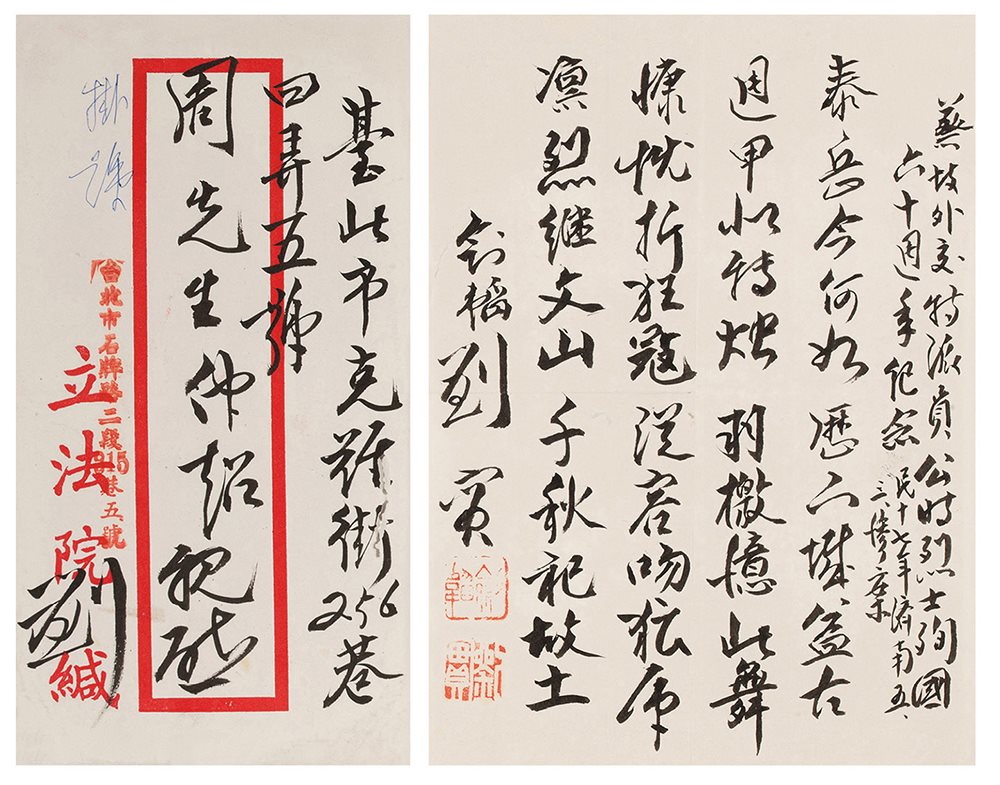 臺北市克難街256巷
四弄五號
周先生仲超親啟
掛號
台北市石牌路二段315巷五號
立法院劉緘
蔡故外交特派員公時烈士殉國
六十週年紀念
民十七年濟南五、
三慘案
泰岳今何如 歷下城益古
週甲似轉燭 羽檄憶此舞
慷慨折狂寇 從容吻虎
凛烈繼文山 千秋祀故土
劍韜劉實